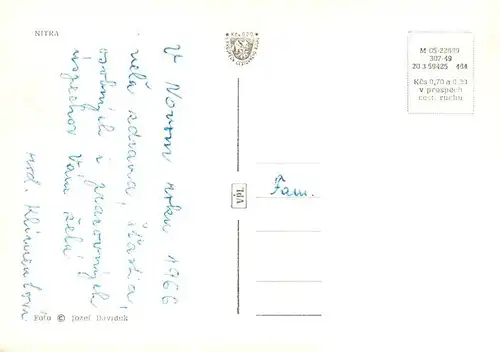 NITRA
V Novom roku 1966
veľa zdravia, šťastia,
osobných i pracovných
úspechov Vám želá
rod. Klimentová
Foto © Jozef Davidek
VPL
Fam.
M 05-22609
307-49
20 3 59425 464
Kčs 0,70 a 0.30
v prospěch
cest. ruchu